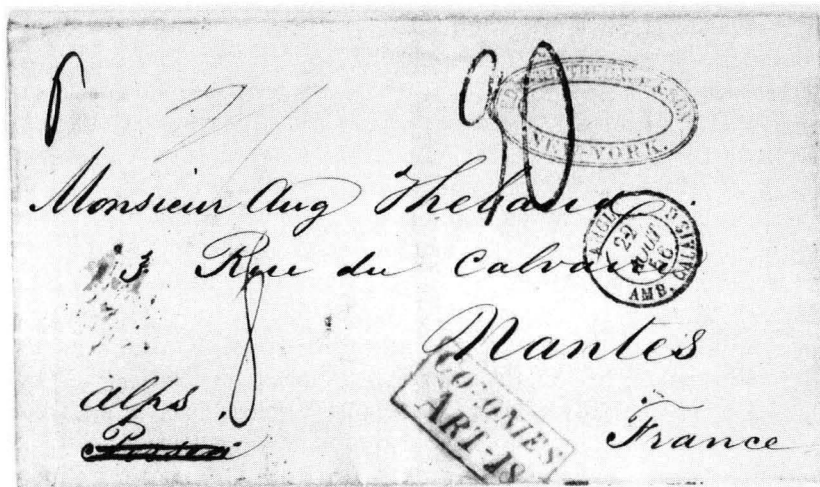 90
NEW-YORK.
Monsieur Aug Thebaud
3 Rue du Calvaire
22
AOUT
56
AMB. CALAIS
8
Nantes
Alps,
COLONIES
ART-18
France